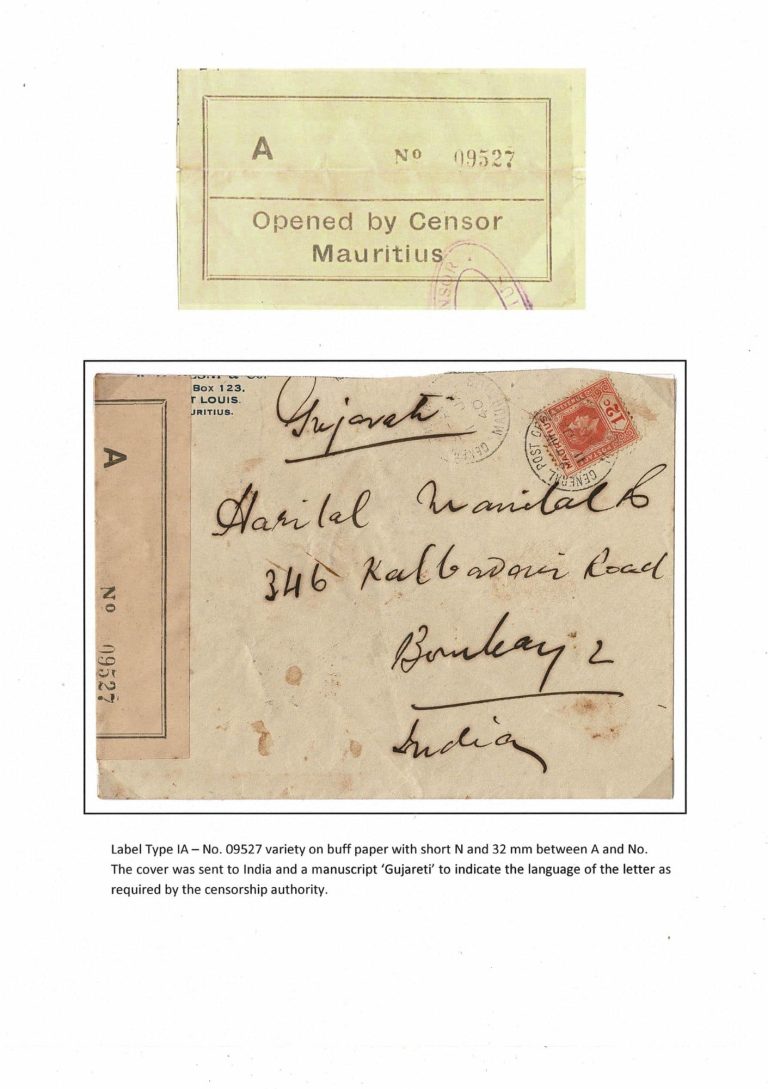 A No 09527
Opened by Censor
Mauritius
CENSOR
Box 123,
T LOUIS.
URITIUS.
Gujarati
GENERAL
12c
GENERAL POST
MAURITIUS
A
No 09527
Harilal Manilal
346 Kalbadevi Road
Bombay 2
India
Label Type IA – No. 09527 variety on buff paper with short N and 32 mm between A and No.
The cover was sent to India and a manuscript ‘Gujareti’ to indicate the language of the letter as
required by the censorship authority.